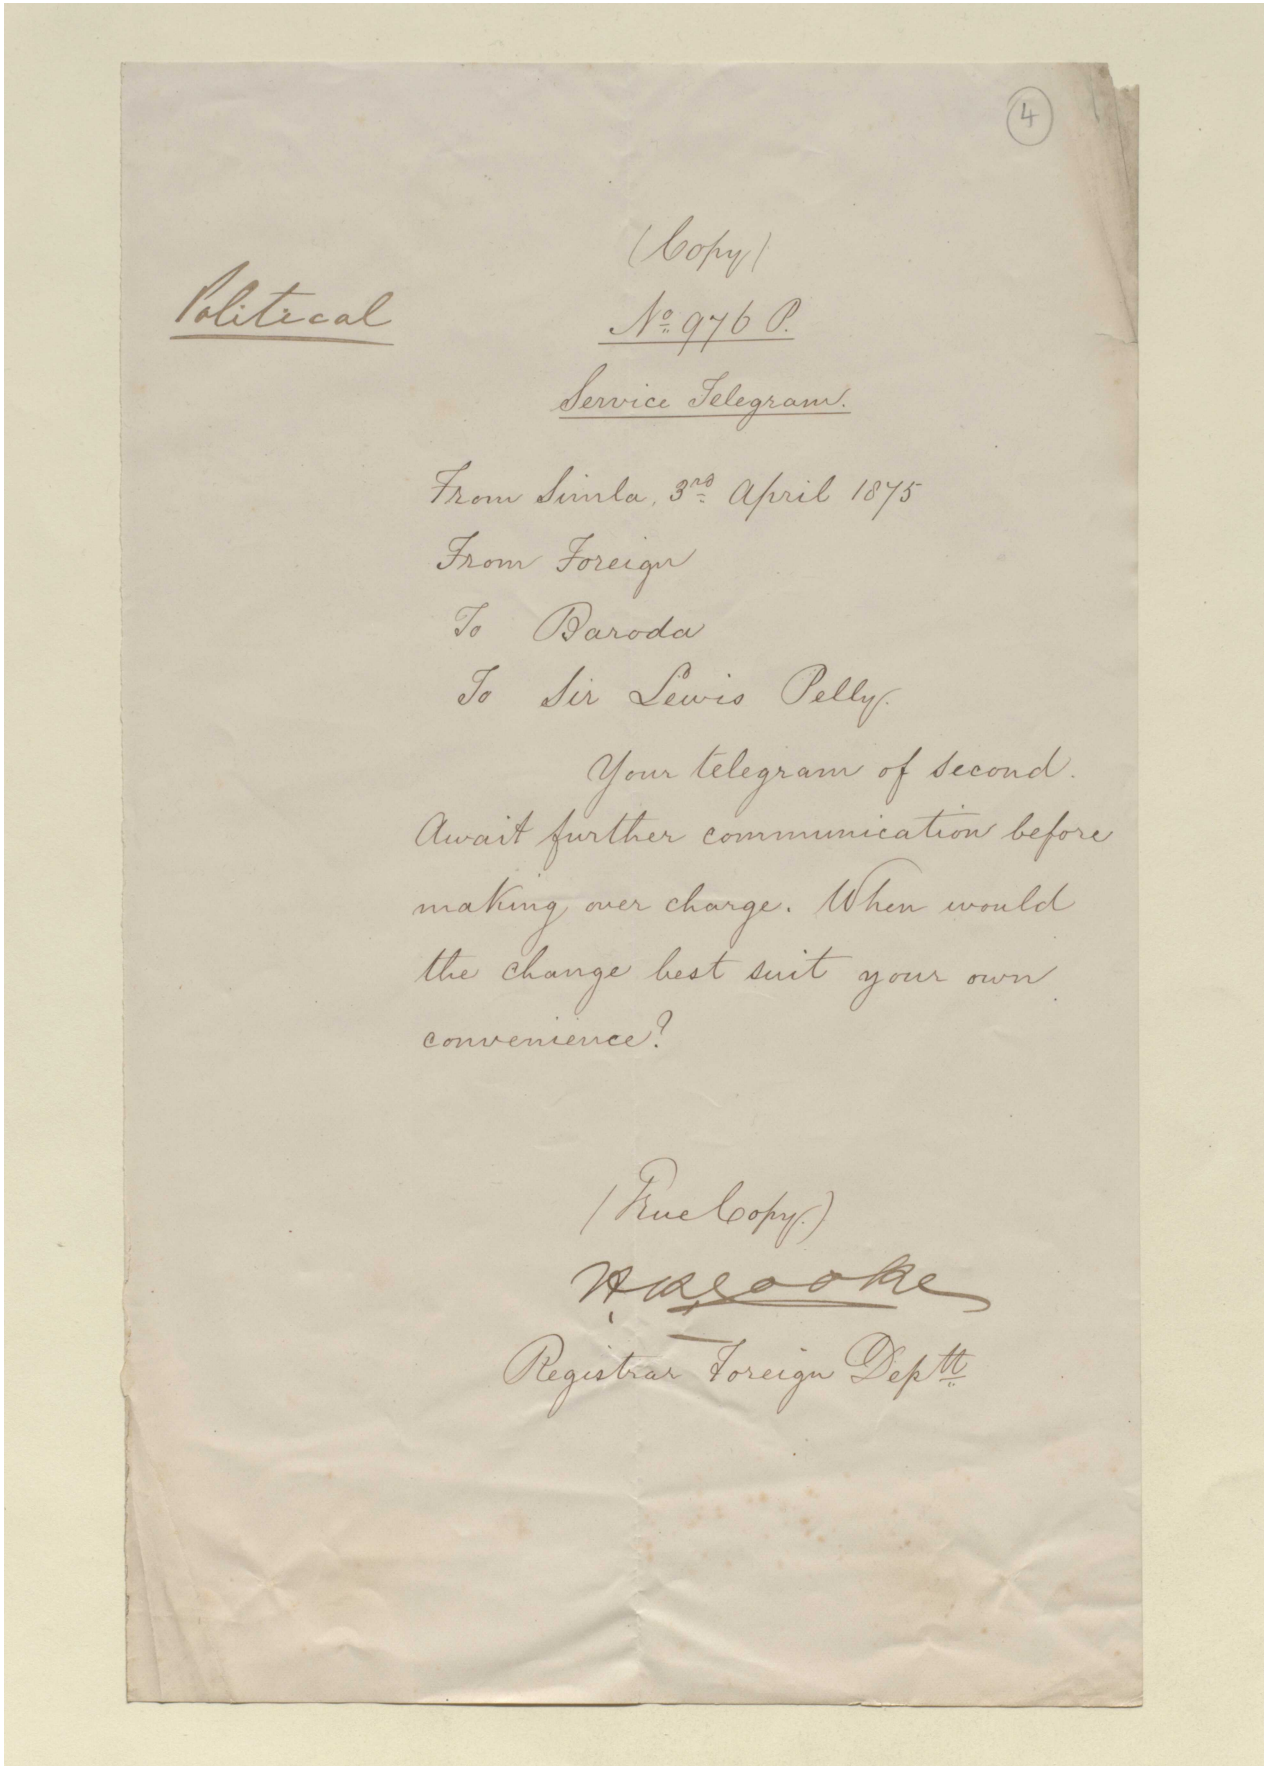 4
(Copy)
Political
No. 976 P.
Service Telegram.
From Simla, 3rd April 1875
From Foreign
To Baroda
To Sir Lewis Pelly.
Your telegram of second.
Await further communication before
making over charge. When would
the change best suit your own
convenience?
(True Copy.)
Cooke
Registrar Foreign Deptt